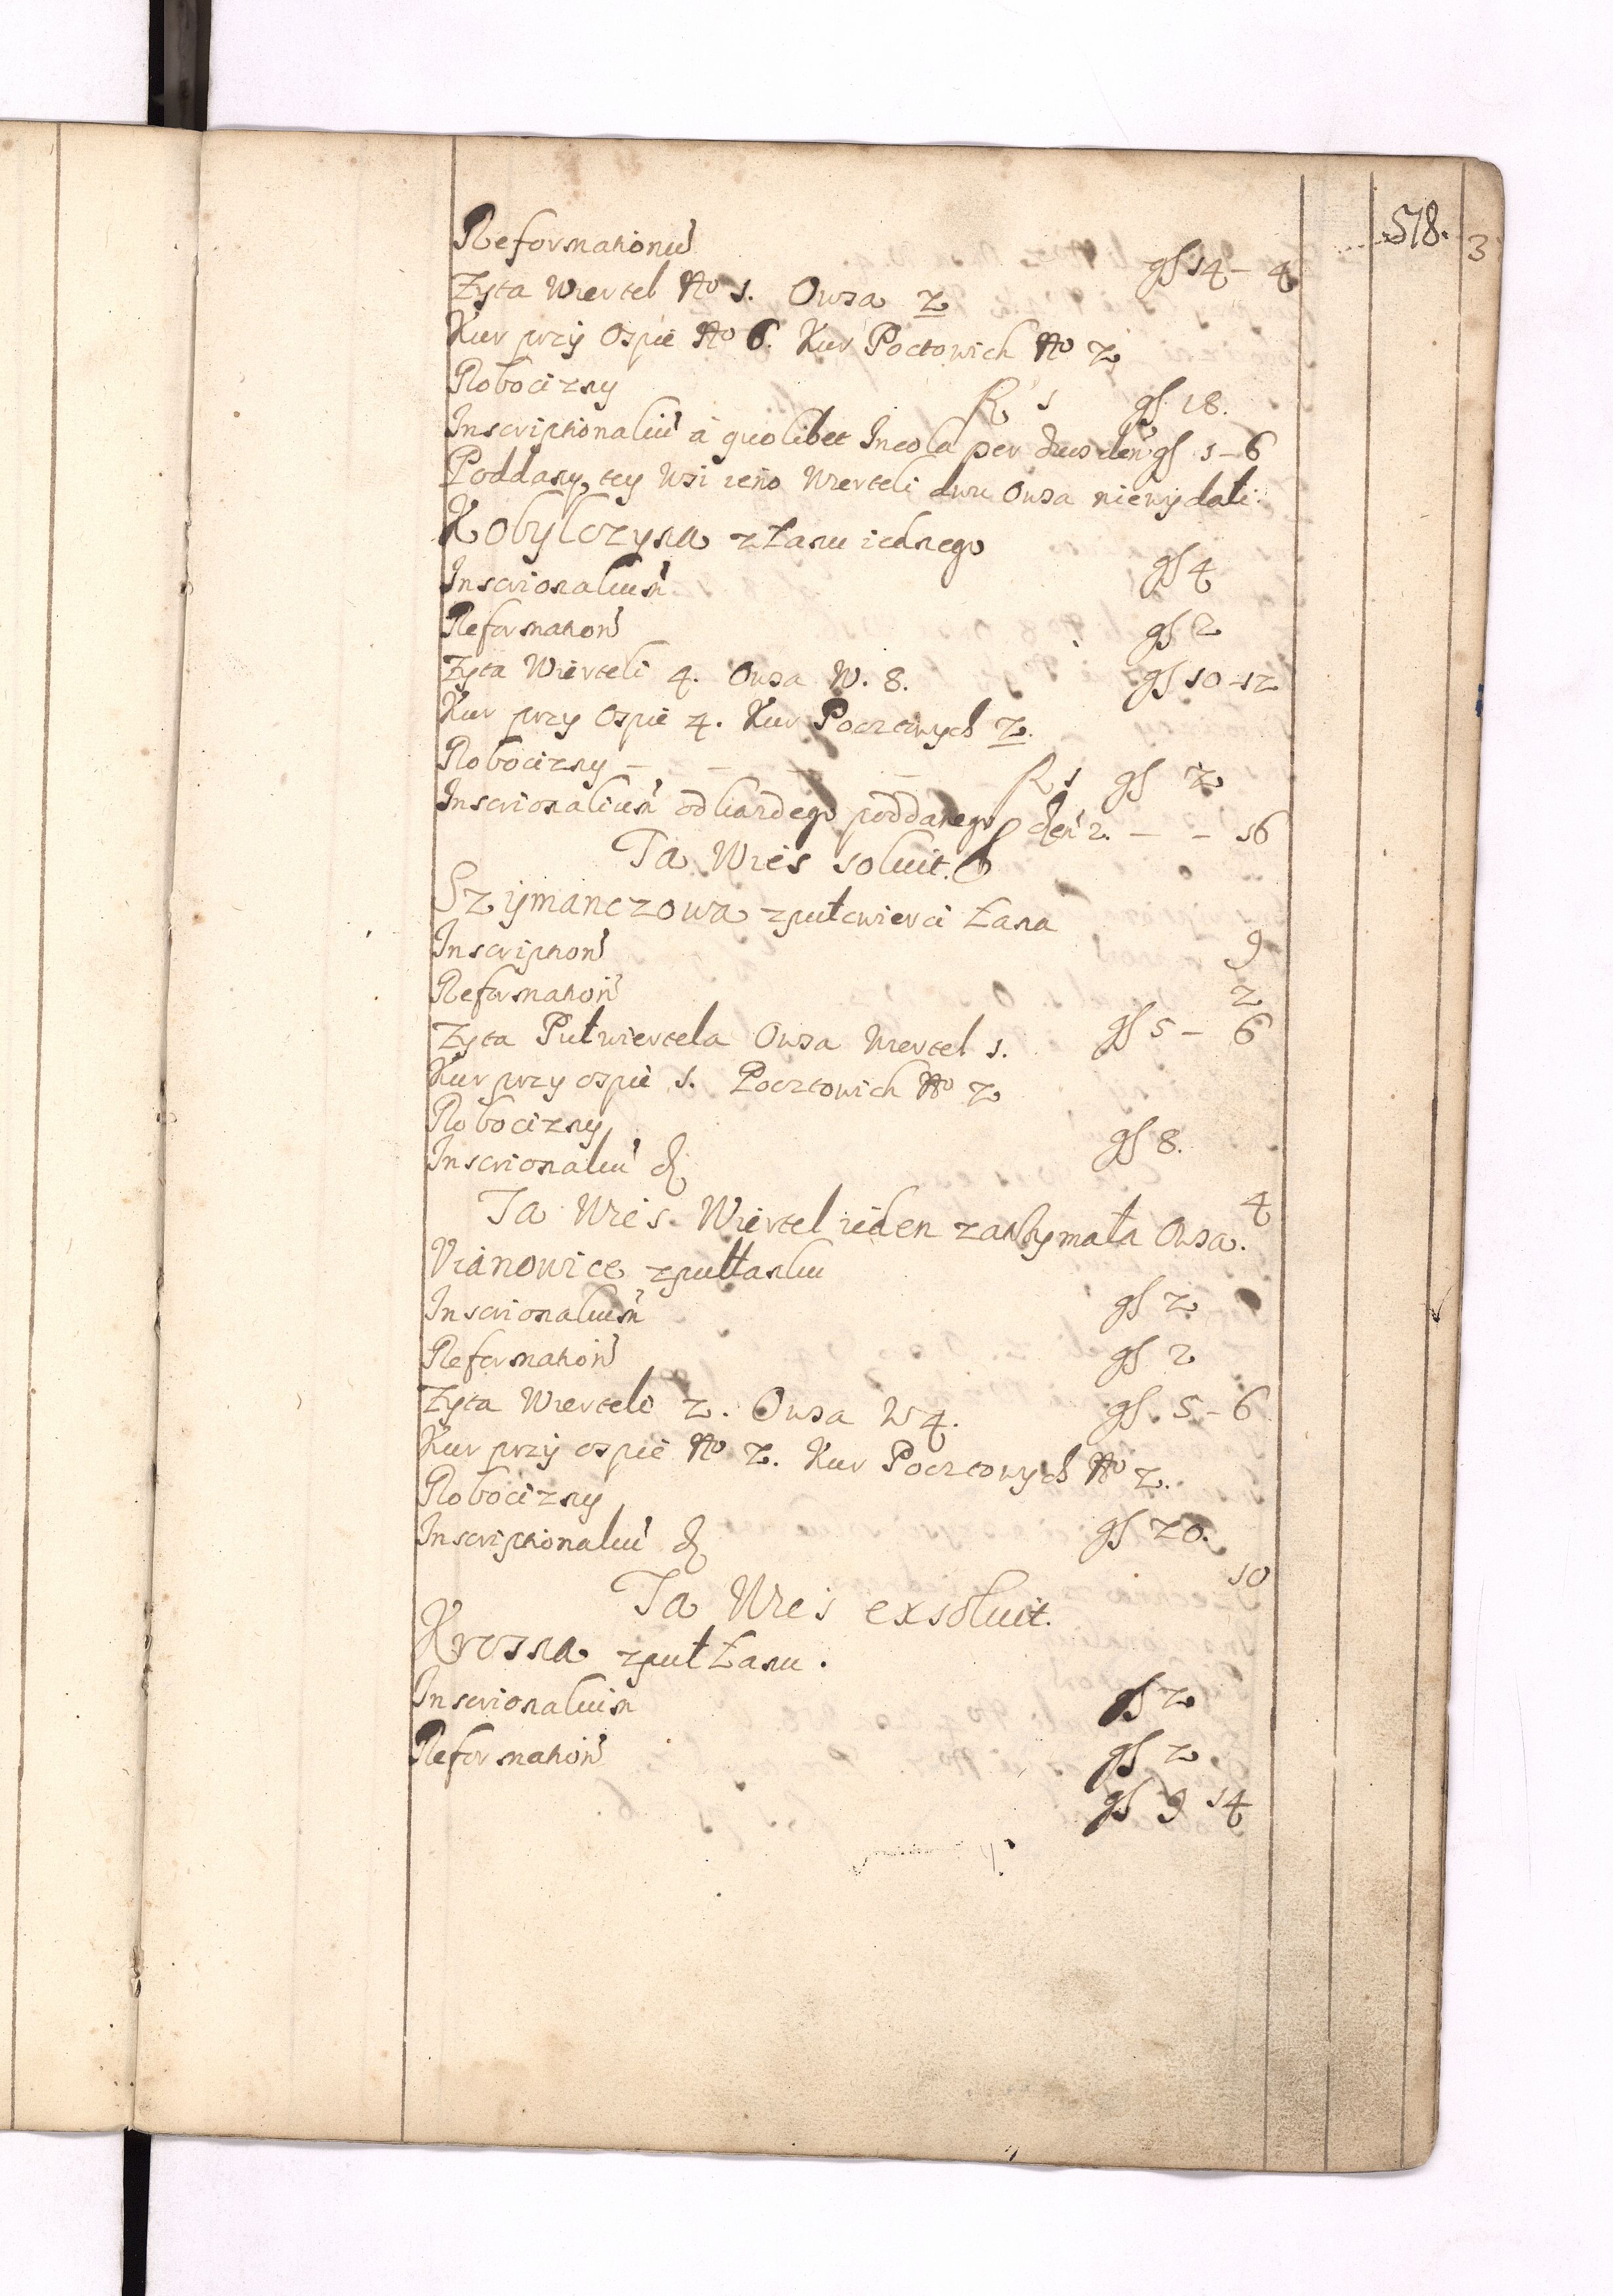 578. 3
Reformationũ gſ 14 – 4
Zyta Wiertel No 1. Owsa 2
Kur przÿ Ospie No 6. Kur Poctowich No 2
Robocizny R 1 gſ 18.
Inscriptionaliũ a quolibet Incola per duos den gſ 1 – 6
Poddany tey Wsi ieno Wierteli dwu Owsa niewydali.
Kobylczyna z Łanu iednego
Inscrionalium gſ 4
Reformation gſ 2
Zyta Wierteli 4. Owsa W. 8. gſ 10 – 12
Kur przy Ospie 4. Kur Pocztowych 2.
Robocizny – – – – R 1 gſ 2
Inscrionalium od kazdego poddanego den 2. – – 16
Ta Wies soluit.
Szÿmanczowa z puł cwierci Łana
Inscription 9
Reformation 2
Zyta Puł wiertela Owsa Wiertel 1. gſ 5 – 6
Kur przy ospie 1. Pocztowich No 2
Robocizny gſ 8.
Inscrionaliũ
4
Ta Wies Wiertel ieden zatrzymała Owsa.
Vianowice z puł łanku
Inscrionalium gſ 2
Reformation gſ 2
Zyta Wierteli 2. Owsa W 4. gſ 5 – 6
Kur przÿ ospie No 2. Kur Pocztowych No 2.
Robocizny
Inscriptionaliũ gſ 20.
10
Ta Wies exsoluit.
Krosna z puł Łanu.
Inscrionalium gſ 2
Reformation gſ 2
gſ 9 14